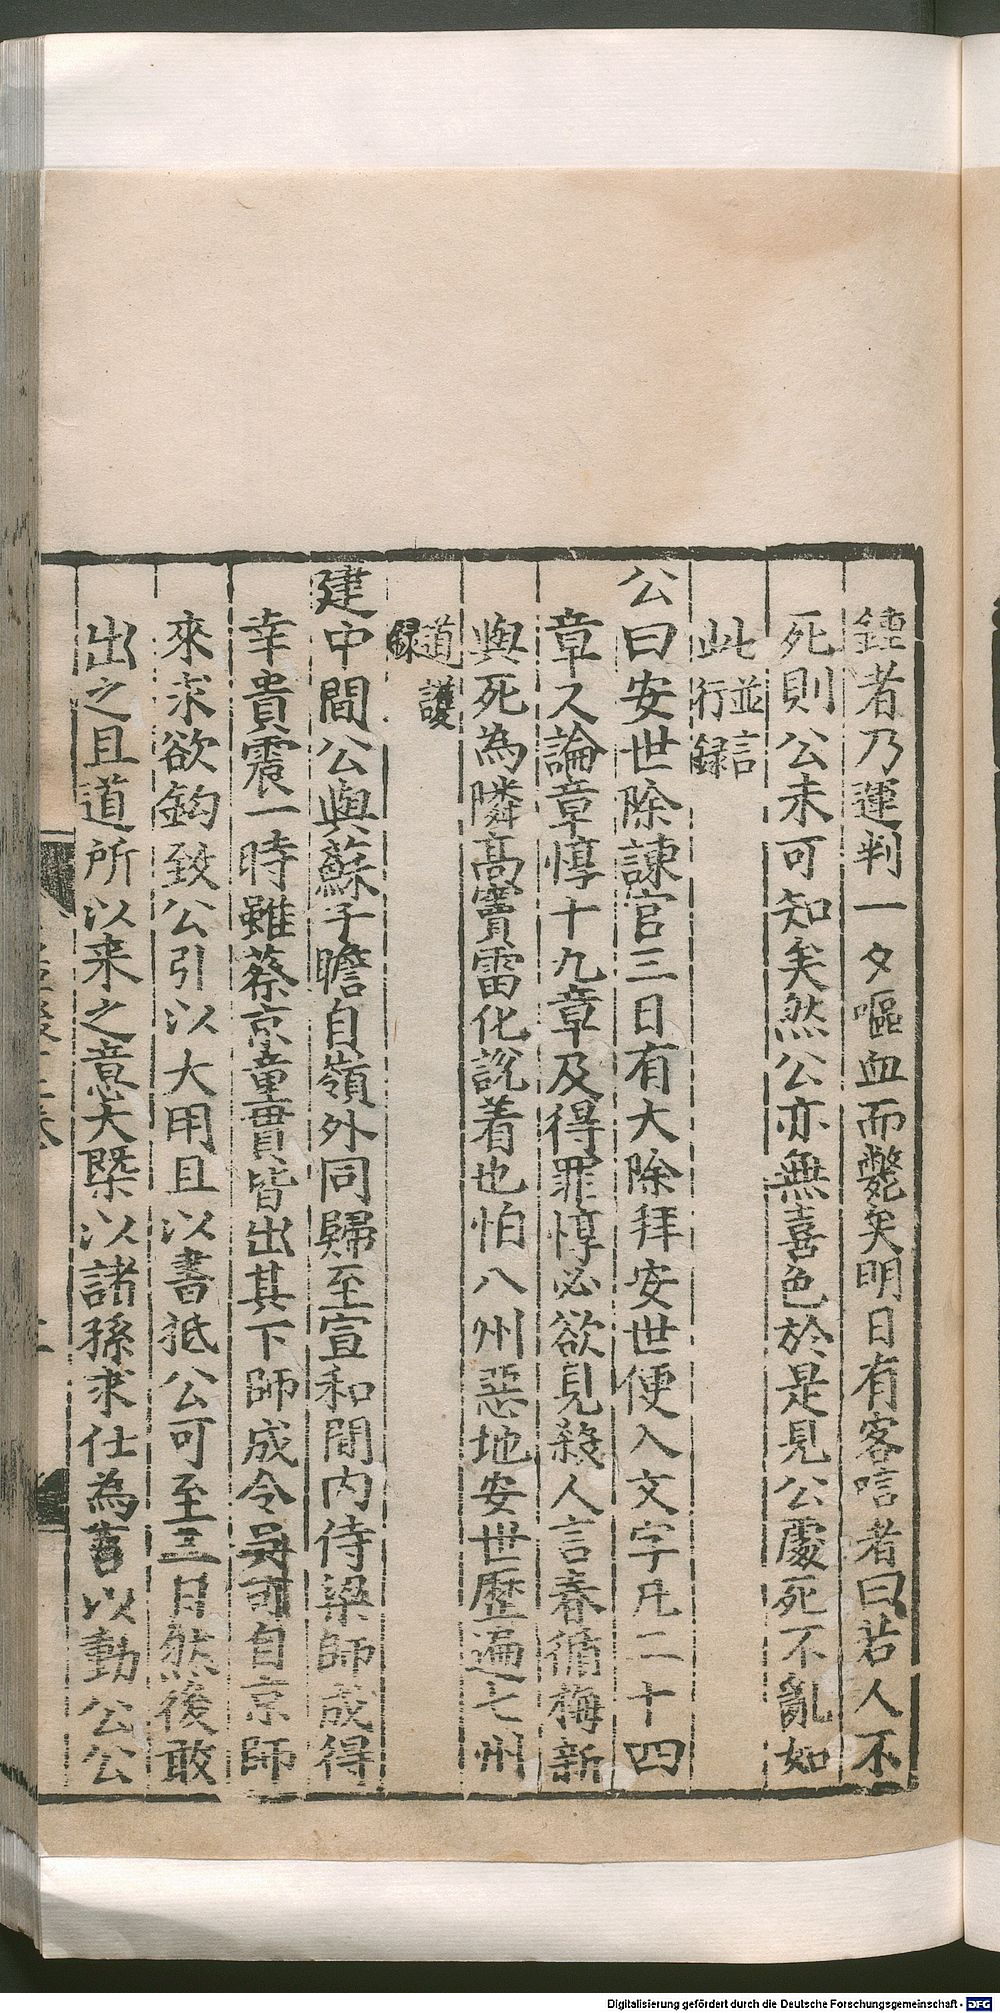 鍾者乃運判一夕嘔血而斃矣明日有客唁者曰若人不
死則公未可知矣然公亦無喜色於是見公處死不亂如
此並言行録
公曰安世除諫官三日有大除拜安世便入文字凡二十四
章又論章惇十九章及得罪惇必欲見殺人言春循梅新
與死為隣高竇雷化說着也怕八州惡地安世歷遍七州
道護録
建中間公與蘇子瞻自嶺外同歸至宣和間内侍梁師成得
幸貴震一時雖蔡京童貫皆出其下師成令吳可自京師
來求欲鈎致公引以大用且以書抵公可至三日然後敢
出之且道所以来之意大槩以諸孫求仕為言以動公公
Digitalisierung gefördert durch die Deutsche Forschungsgemeinschaft - DFG